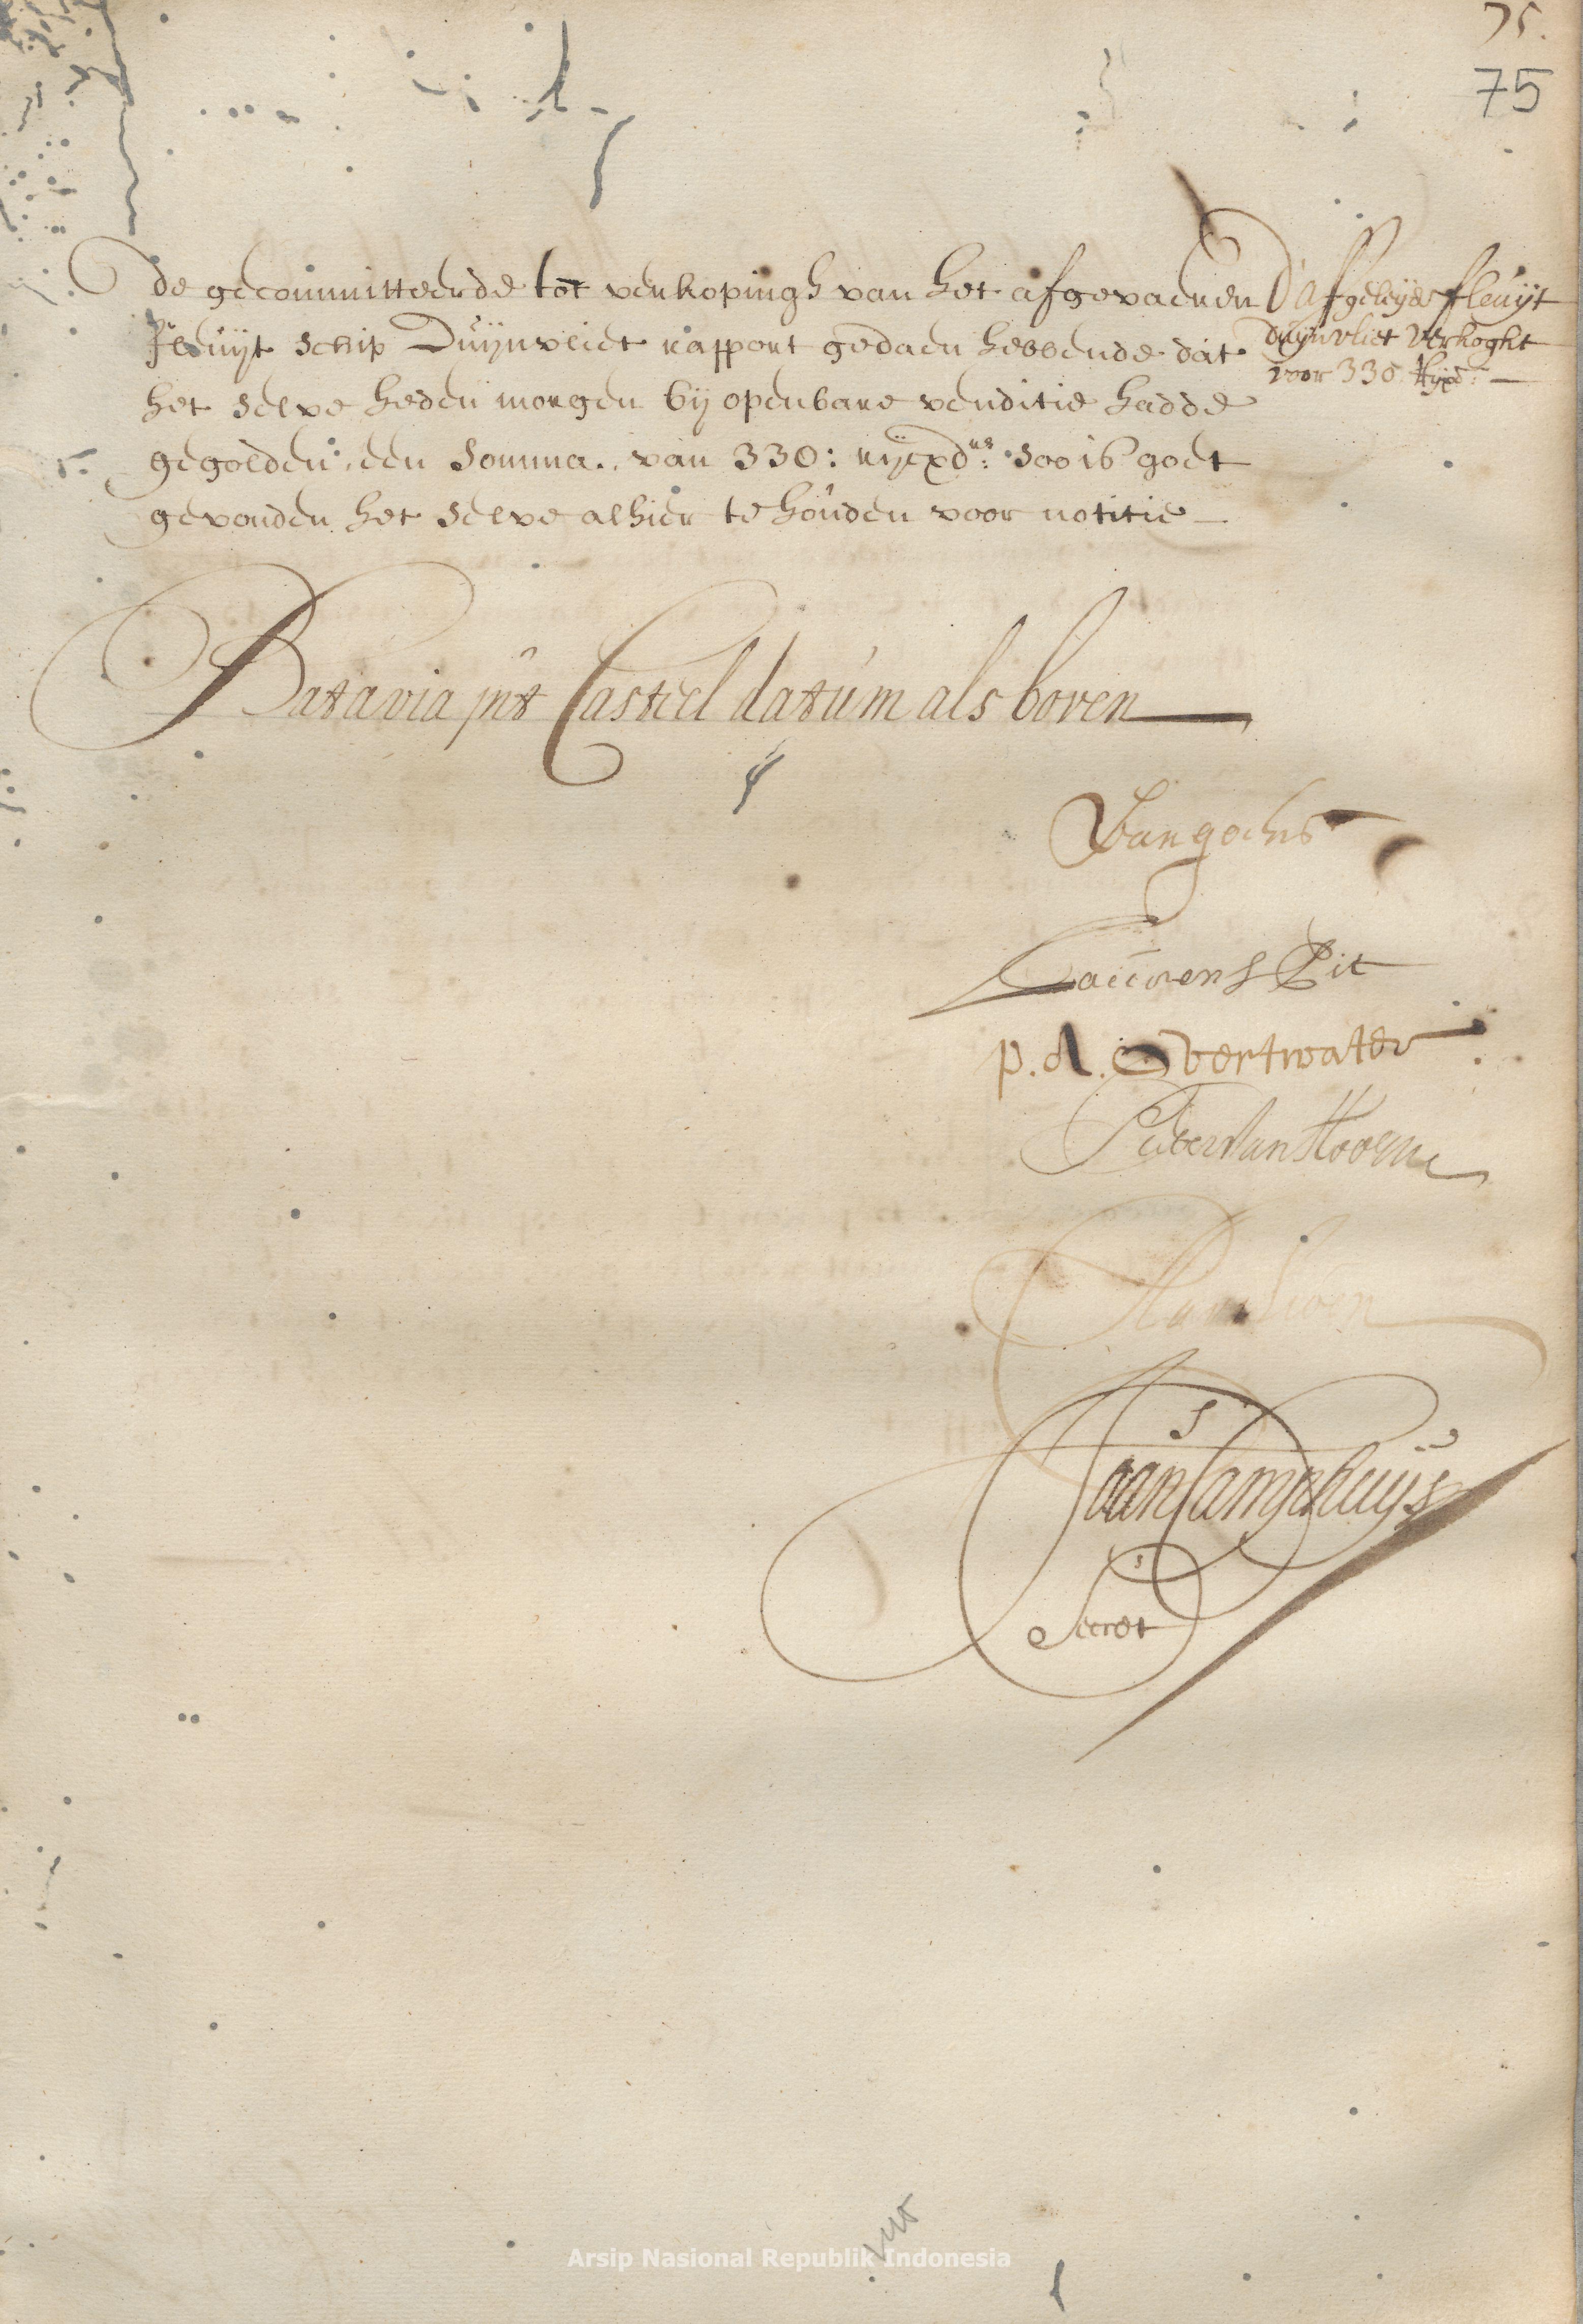 75.
75
de gecommitteerde tot verkopingh van het afgevaeren
fleuijt schip Duijnvliet rapport gedaen hebbende dat
het selve heden morgen bij openbare venditie hadde
gegolden een somma van 330: rijcxdrs: soo is goet
gevonden het selve alhier te houden voor notitie
D'afgeleijde fleuijt
duijnvliet verkoght
voor 330 Rijxd:
Batavia int Casteel datum als boven
Van goens
Laurens Pit
P. A. Overtwater
Pieter Van Hoorn
Joan Camphuijs
Secret
Arsip Nasional Republik Indonesia